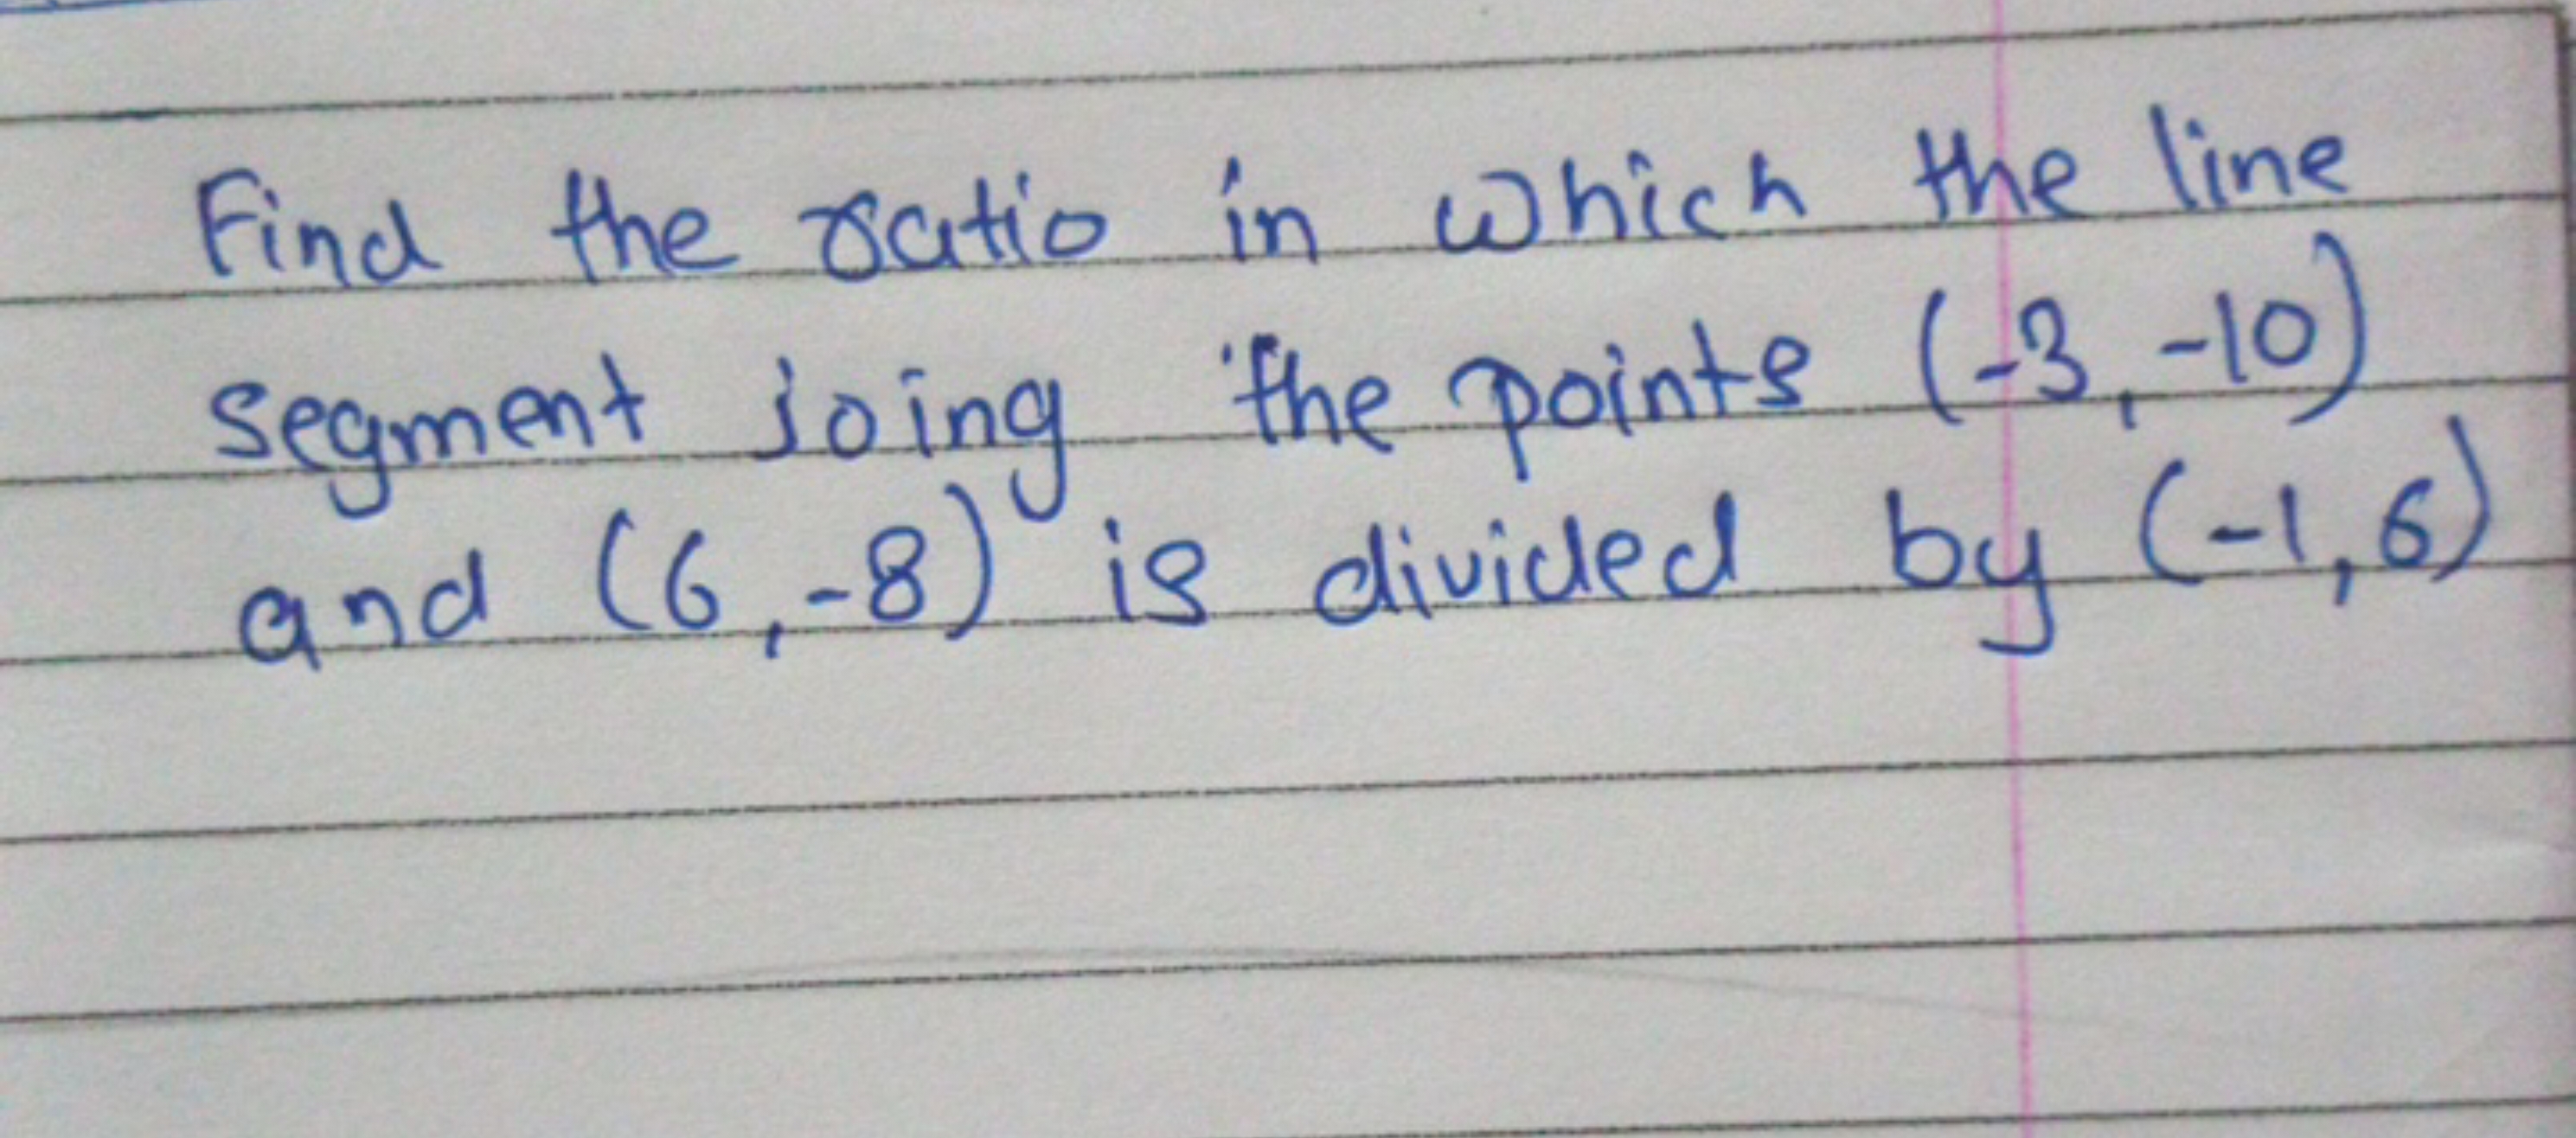 Find the ratio in which the line
segment joing the points (-3,-10)
and (6,-8) is divided by (-1,6)